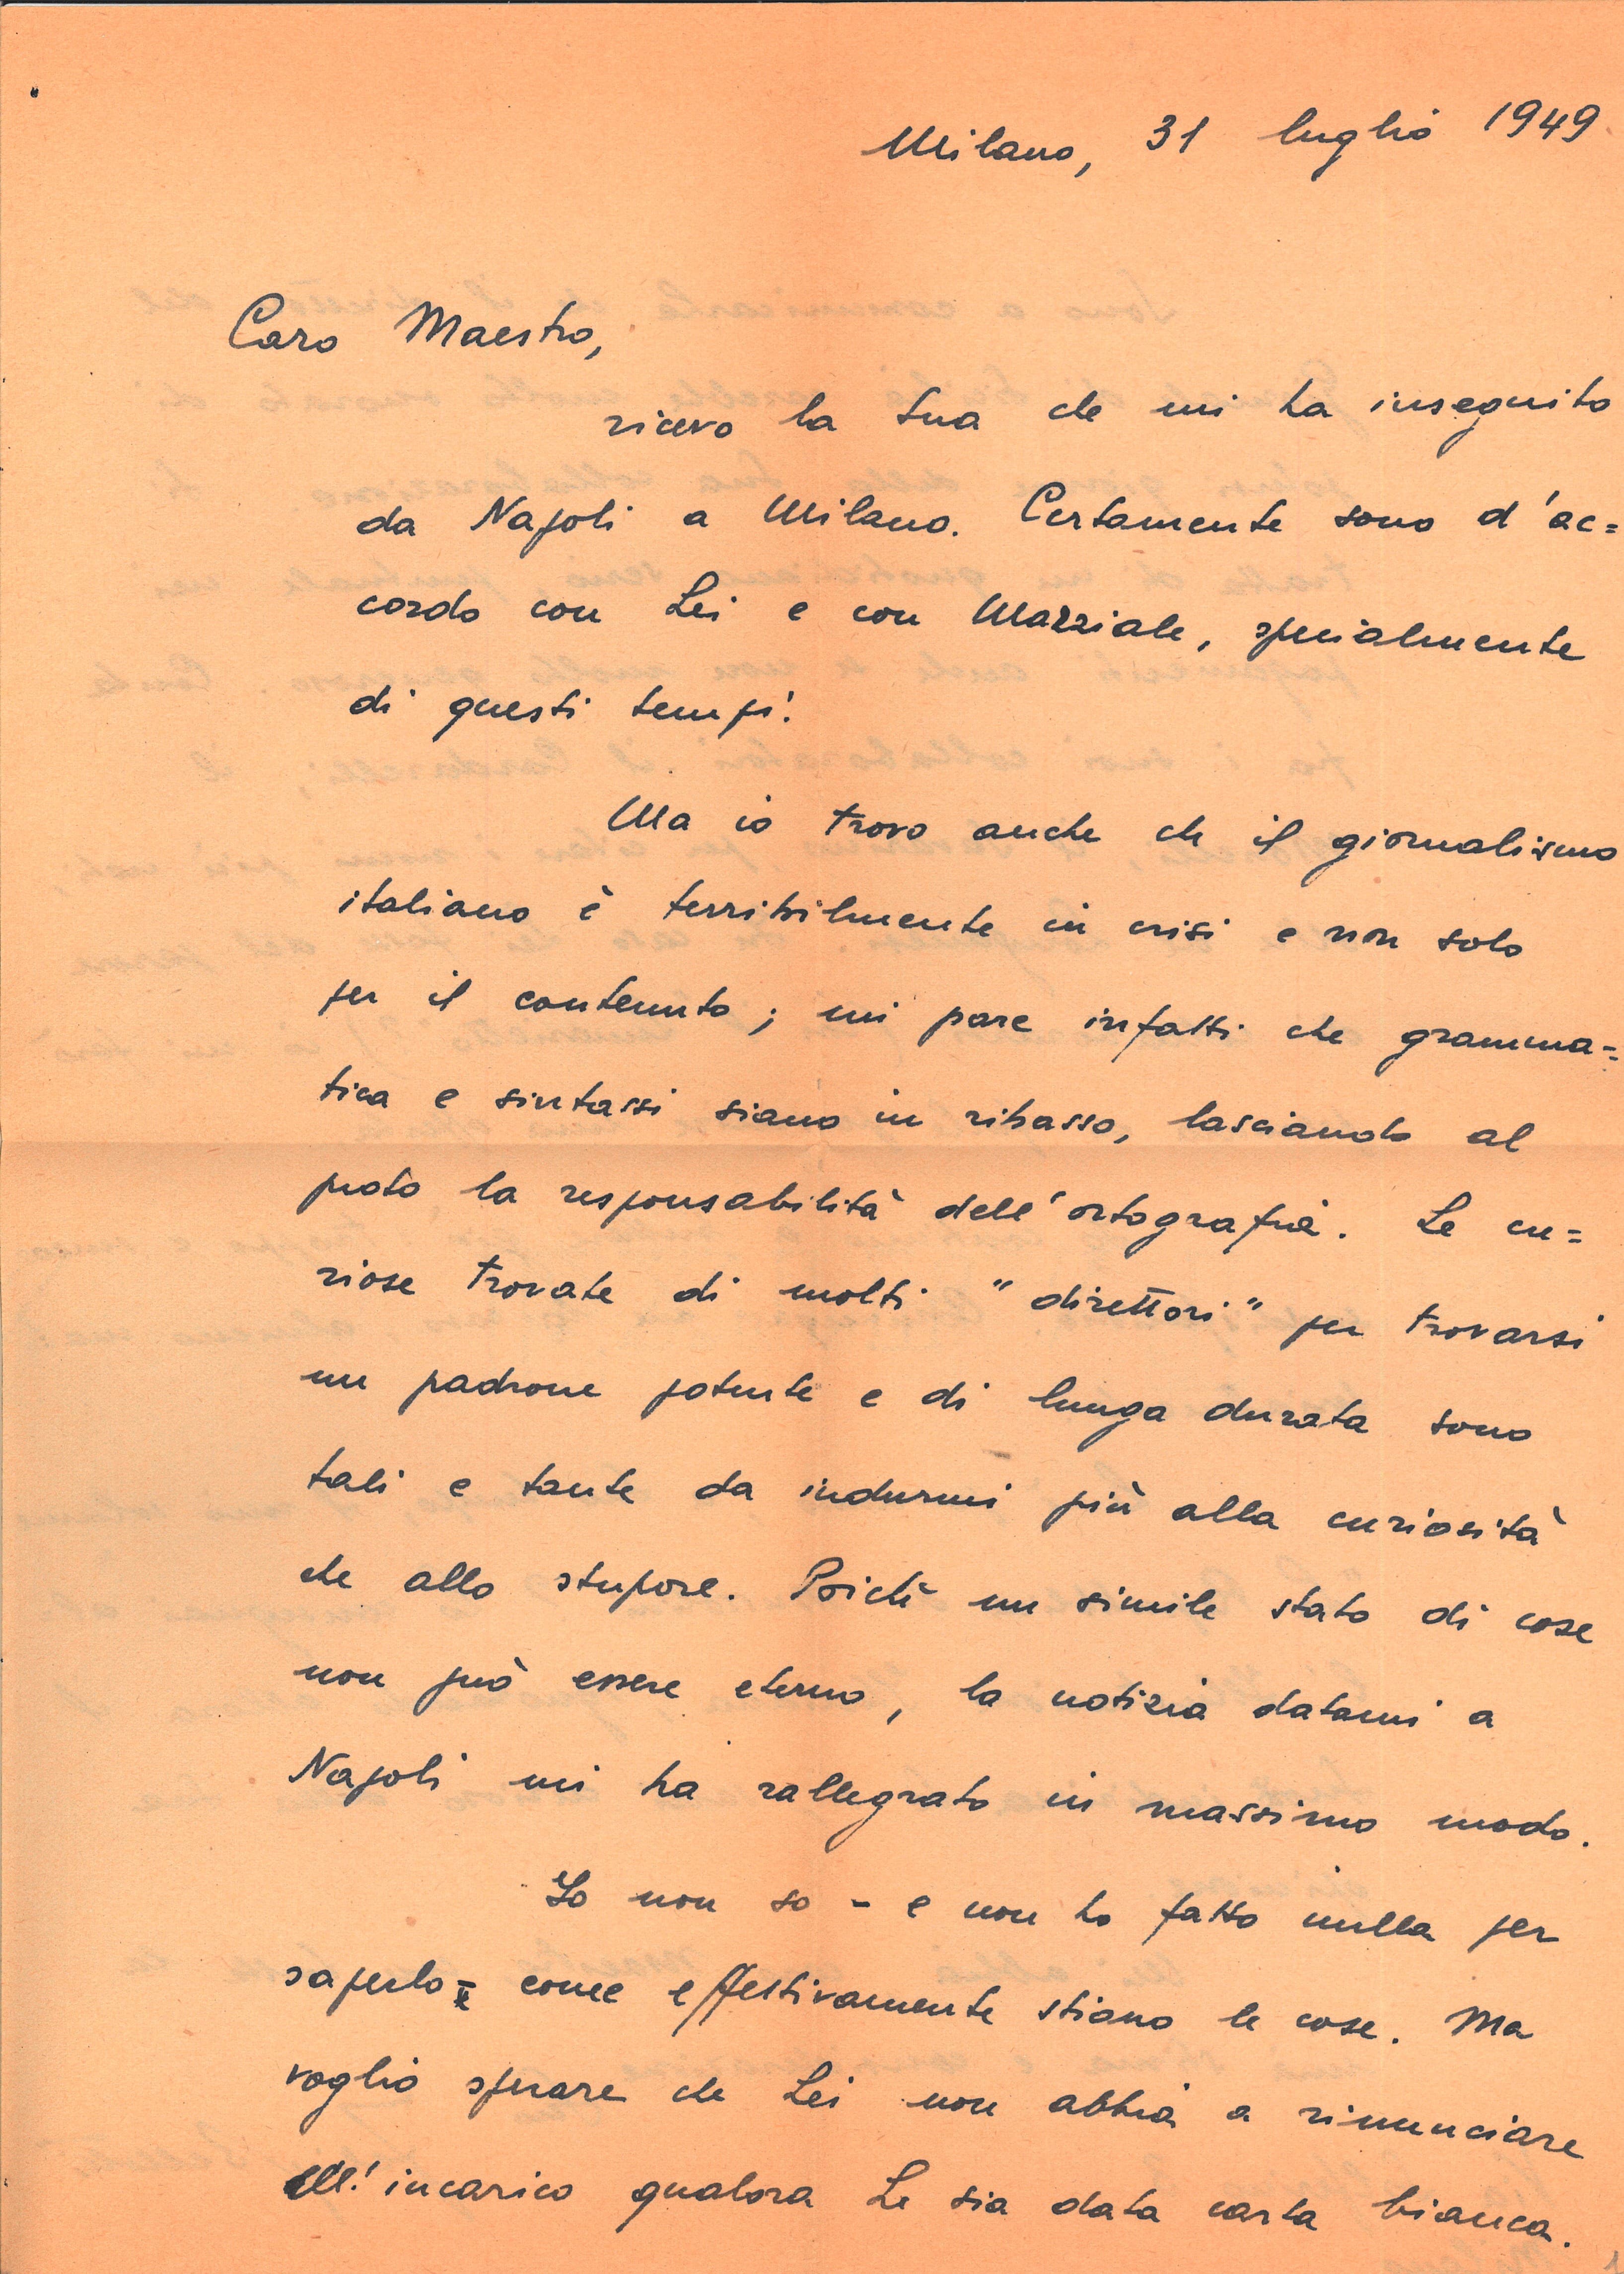 Milano, 31 luglio 1949
Caro Maestro,
ricevo la Sua che mi ha inseguito
da Napoli a Milano. Certamente sono d'ac=
cordo con Lei e con Marziale, specialmente
di questi tempi!
Ma io trovo anche che il giornalismo
italiano è terribilmente in crisi e non solo
per il contenuto; mi pare infatti che gramma=
tica e sintassi siano in ribasso, lasciando al
proto la responsabilità dell'ortografia. Le cu=
riose trovate di molti "direttori" per trovarsi
un padrone potente e di lunga durata sono
tali e tante da indurmi più alla curiosità
che allo stupore. Poichè un simile stato di cose
non può essere eterno, la notizia datami a
Napoli mi ha rallegrato in massimo modo.
Io non so - e non ho fatto nulla per
saperlo - come effettivamente stiano le cose. Ma
voglio sperare che Lei non abbia a rinunciare
all'incarico qualora Le sia data carta bianca.